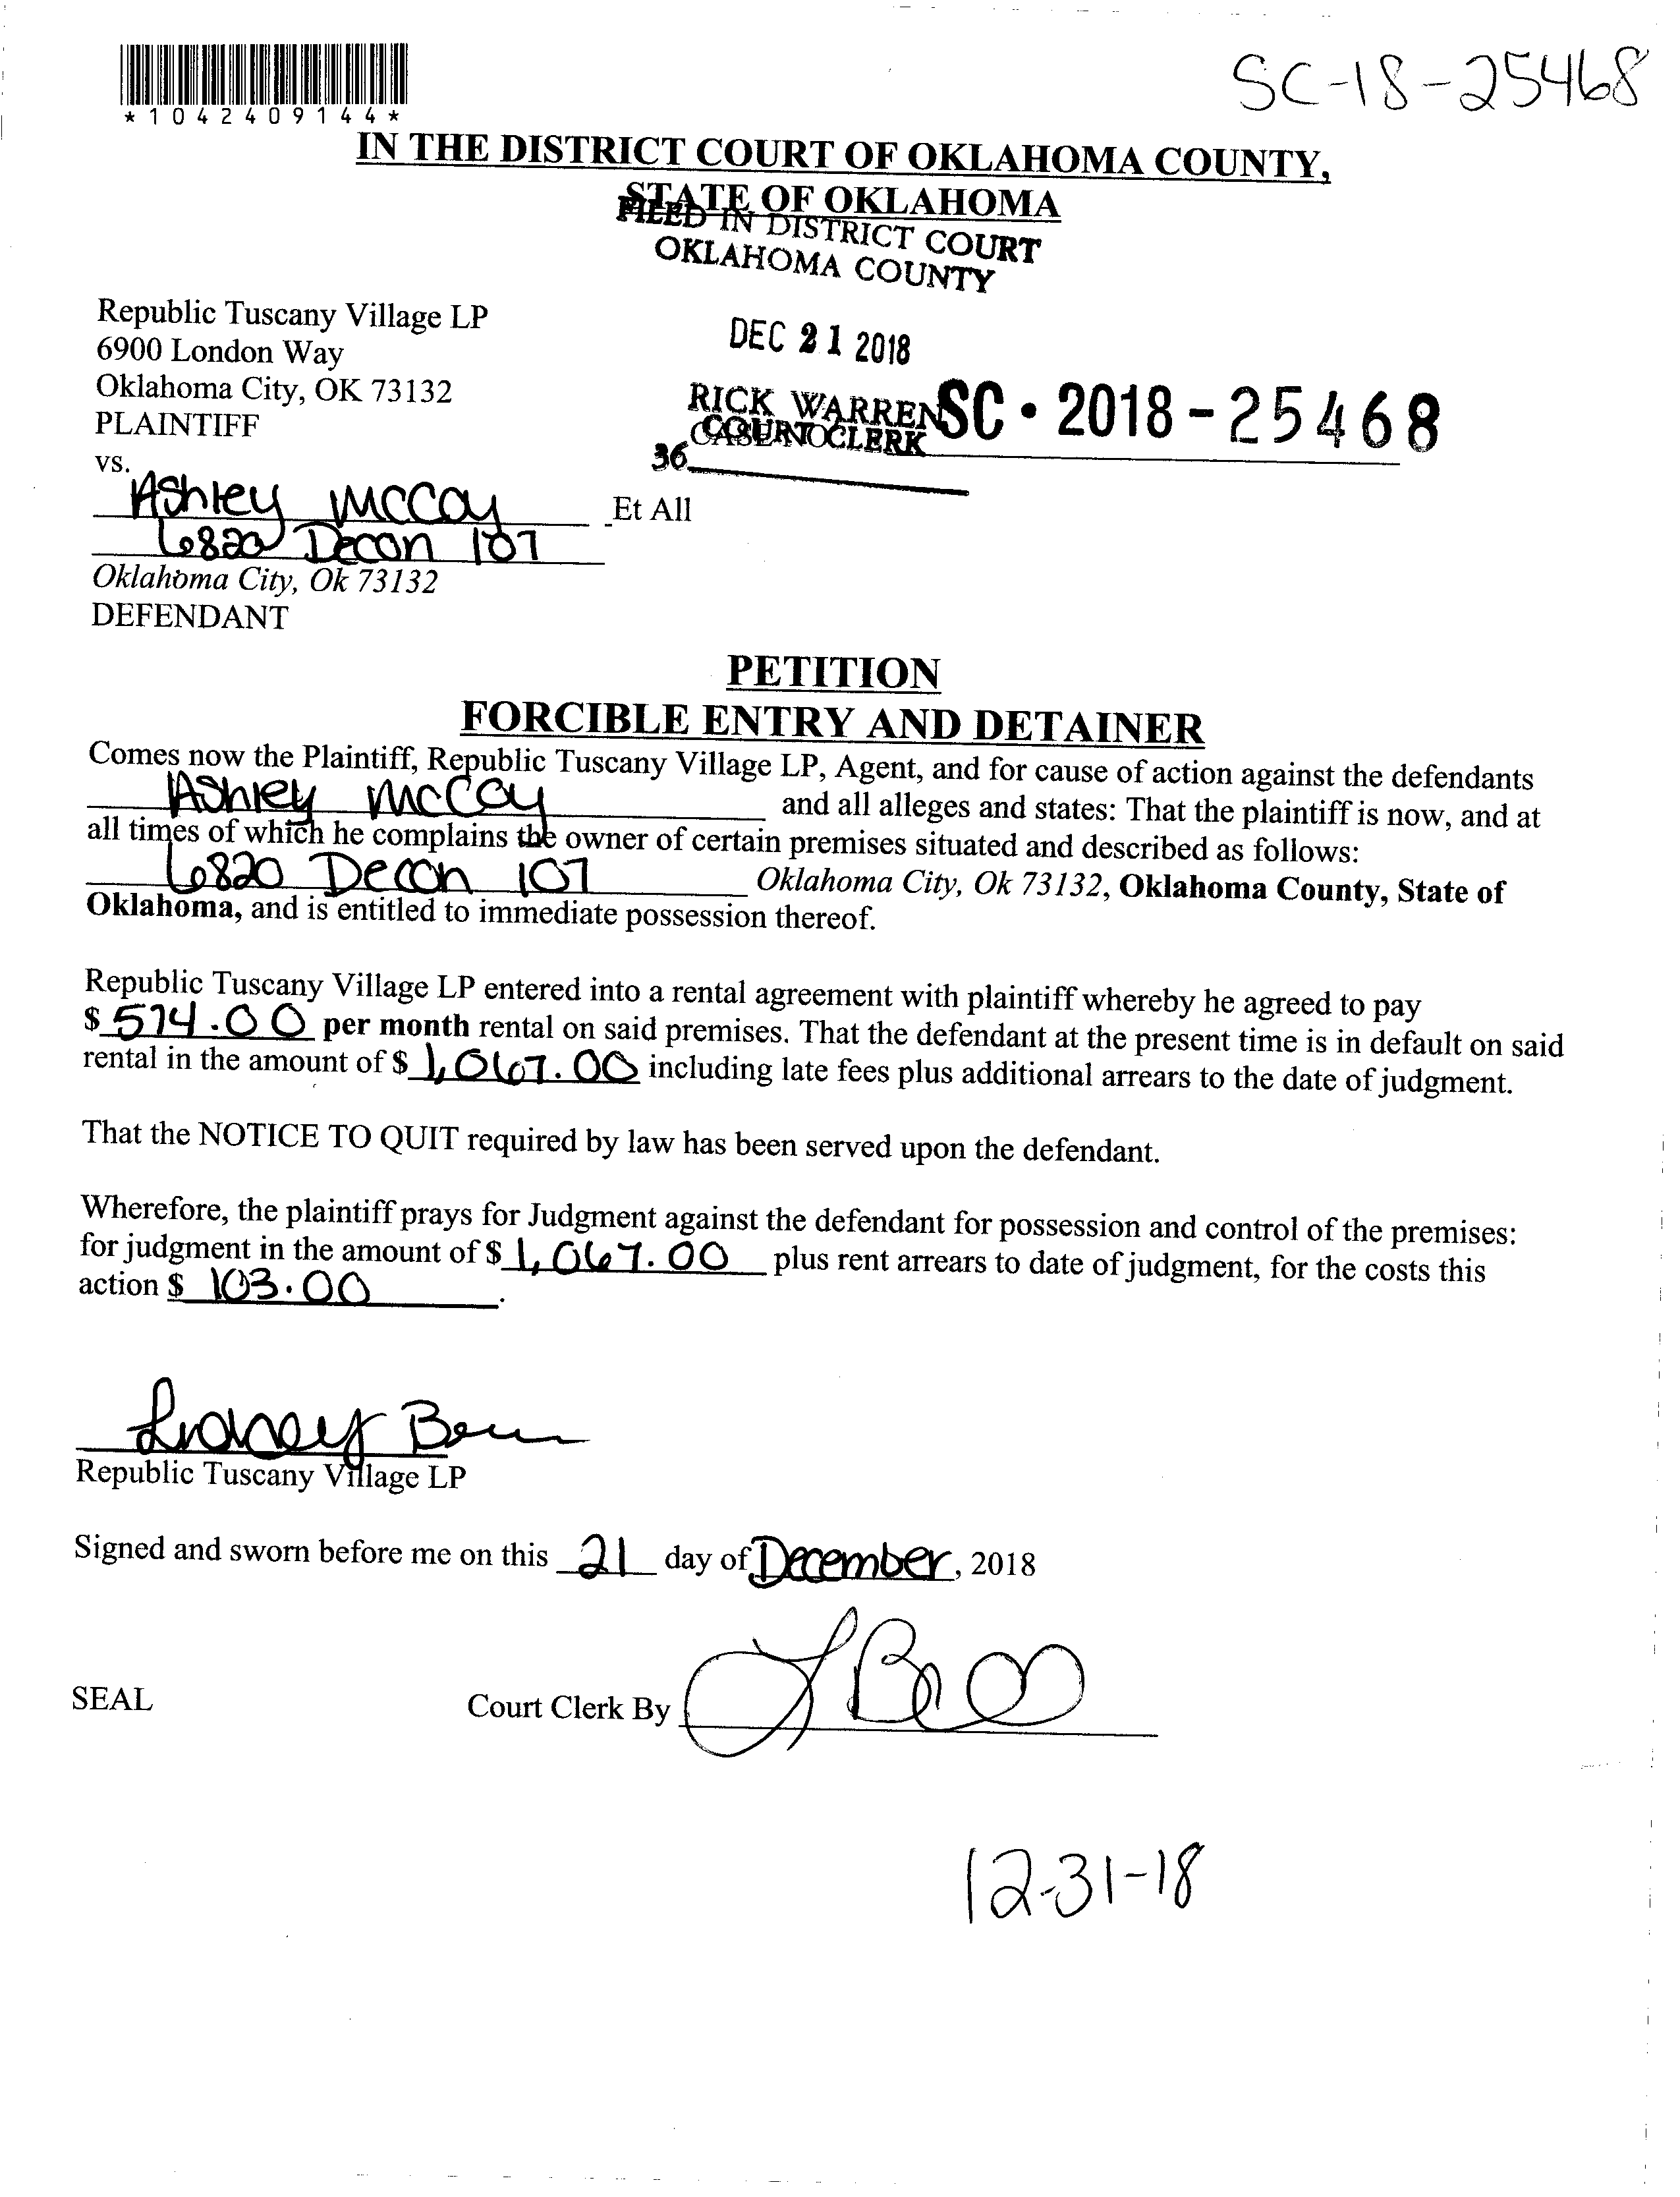 SC-18-25468
*1042409144*
IN THE DISTRICT COURT OF OKLAHOMA COUNTY,
STATE OF OKLAHOMA
FILED IN DISTRICT COURT
OKLAHOMA COUNTY
Republic Tuscany Village LP
6900 London Way
DEC 21 2018
Oklahoma City, OK 73132
PLAINTIFF
RICK WARREN SC • 2018-25468
COURT CLERK
36
vs.
Ashley McCoy Et All
6820 Decon 107
Oklahoma City, Ok 73132
DEFENDANT
PETITION
FORCIBLE ENTRY AND DETAINER
Comes now the Plaintiff, Republic Tuscany Village LP, Agent, and for cause of action against the defendants
Ashley McCoy and all alleges and states: That the plaintiff is now, and at
all times of which he complains the owner of certain premises situated and described as follows:
6820 Decon 107 Oklahoma City, Ok 73132, Oklahoma County, State of
Oklahoma, and is entitled to immediate possession thereof.
Republic Tuscany Village LP entered into a rental agreement with plaintiff whereby he agreed to pay
$ 574.00 per month rental on said premises. That the defendant at the present time is in default on said
rental in the amount of $ 1,067.00 including late fees plus additional arrears to the date of judgment.
That the NOTICE TO QUIT required by law has been served upon the defendant.
Wherefore, the plaintiff prays for Judgment against the defendant for possession and control of the premises:
for judgment in the amount of $ 1,067.00 plus rent arrears to date of judgment, for the costs this
action $ 103.00.
Republic Tuscany Village LP
Signed and sworn before me on this 21 day of December, 2018
SEAL Court Clerk By
12-31-18